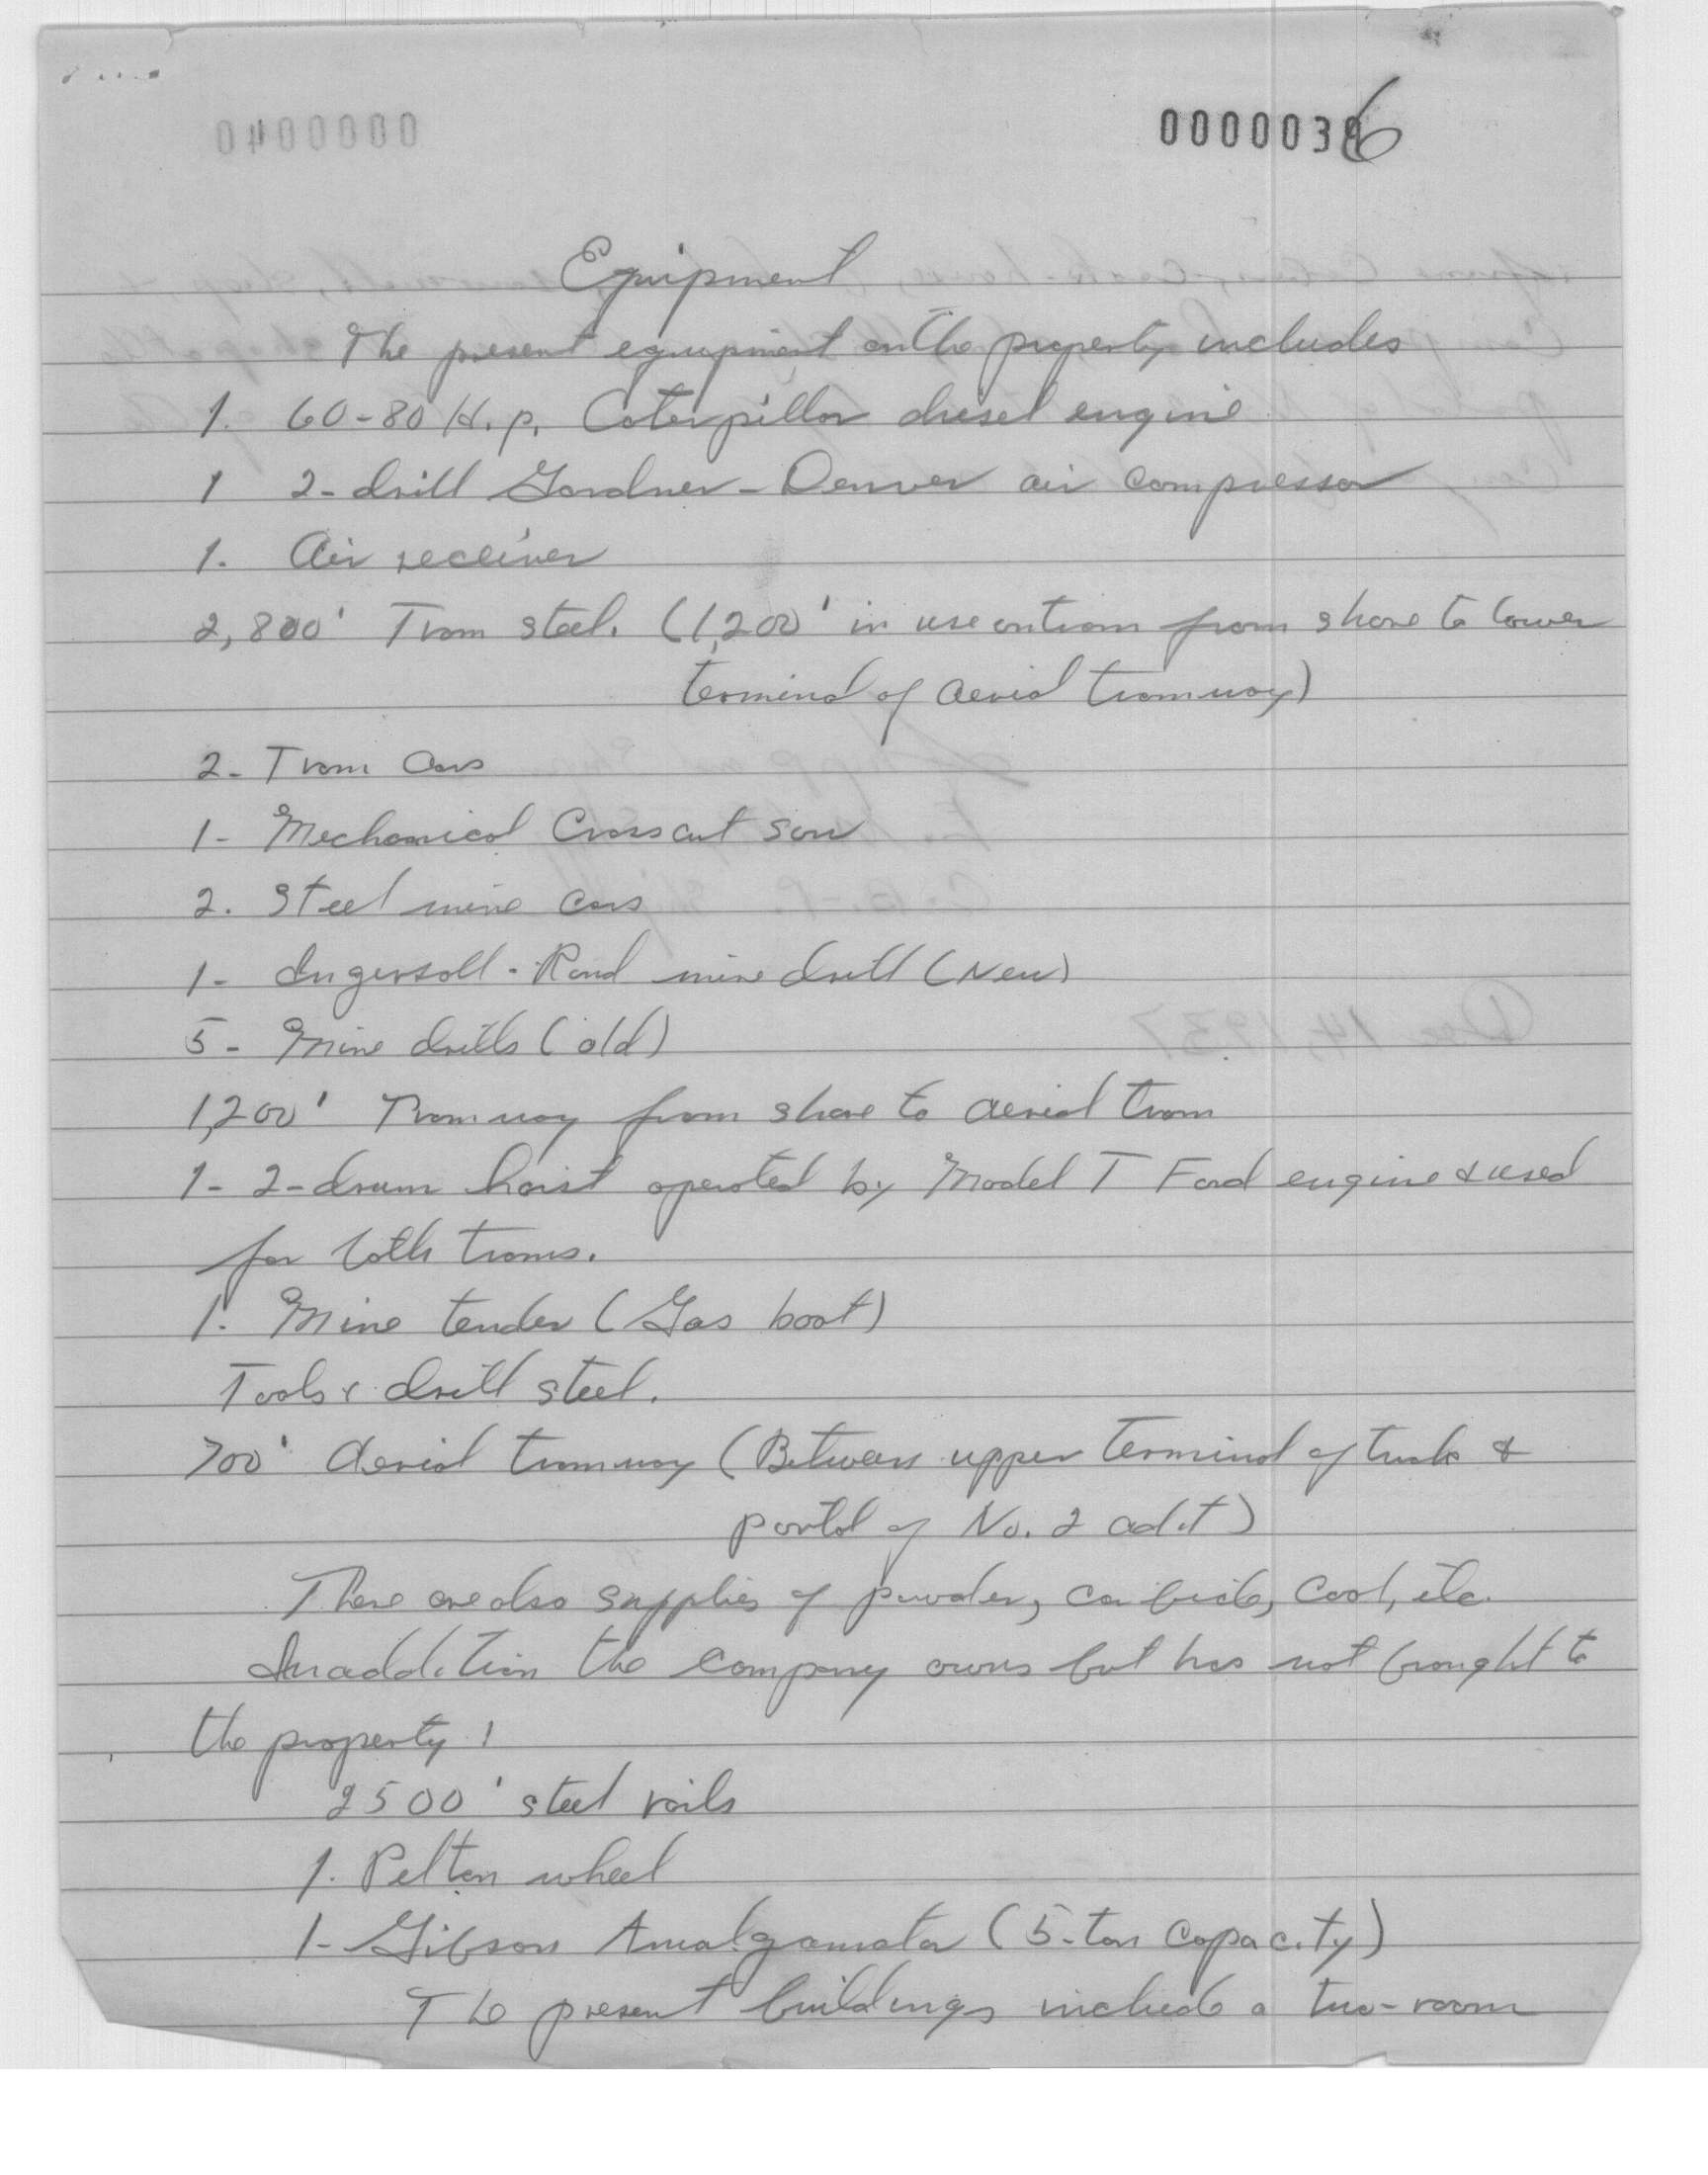 0000036
Equipment
The present equipment on the property includes
1. 60-80 H.p. Caterpillar diesel engine
1 2-drill Gardner-Denver air compressor
1. Air receiver
2,800' Tram steel. (1,200' in use on tram from shore to lower
terminal of aerial tramway)
2- Tram Cars
1- Mechanical Crosscut saw
2. Steel mine cars
1- Ingersoll-Rand mine drill (New)
5- Mine drills (old)
1,200' Tramway from shore to aerial tram
1- 2-drum hoist operated by Model T Ford engine & used
for both trams.
1. Mine tender (Gas boat)
Tools & drill steel.
700' Aerial tramway (Between upper terminal of &
portal of No. 2 adit)
There are also supplies of powder, carbide, coal, etc.
In addition the company owns but has not brought to
the property:
2500' steel rails
1. Pelton wheel
1- Gibson Amalgamator (5-ton capacity)
The present buildings include a two-room